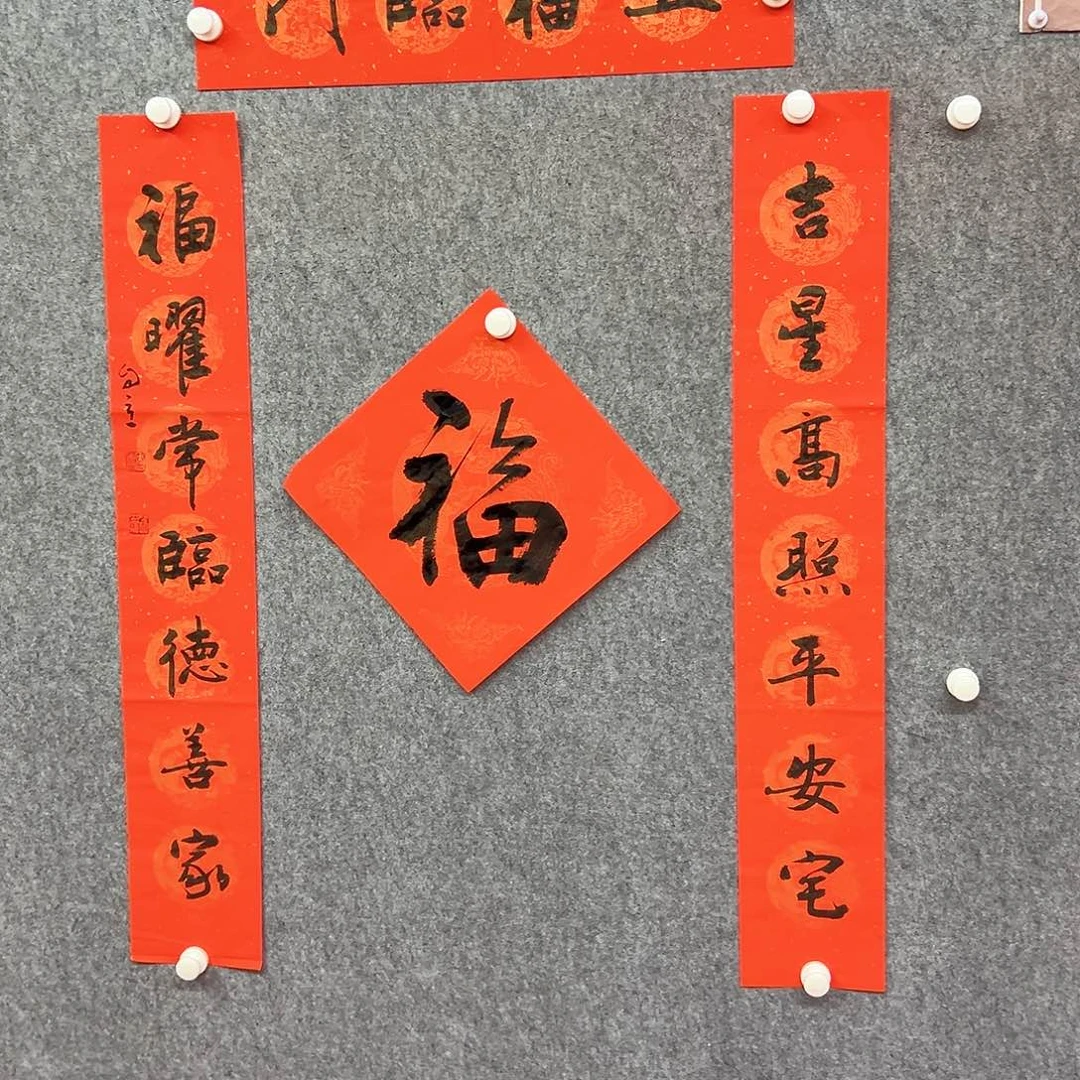 五福臨門
吉星髙照平安宅
福曜常臨德善家
福